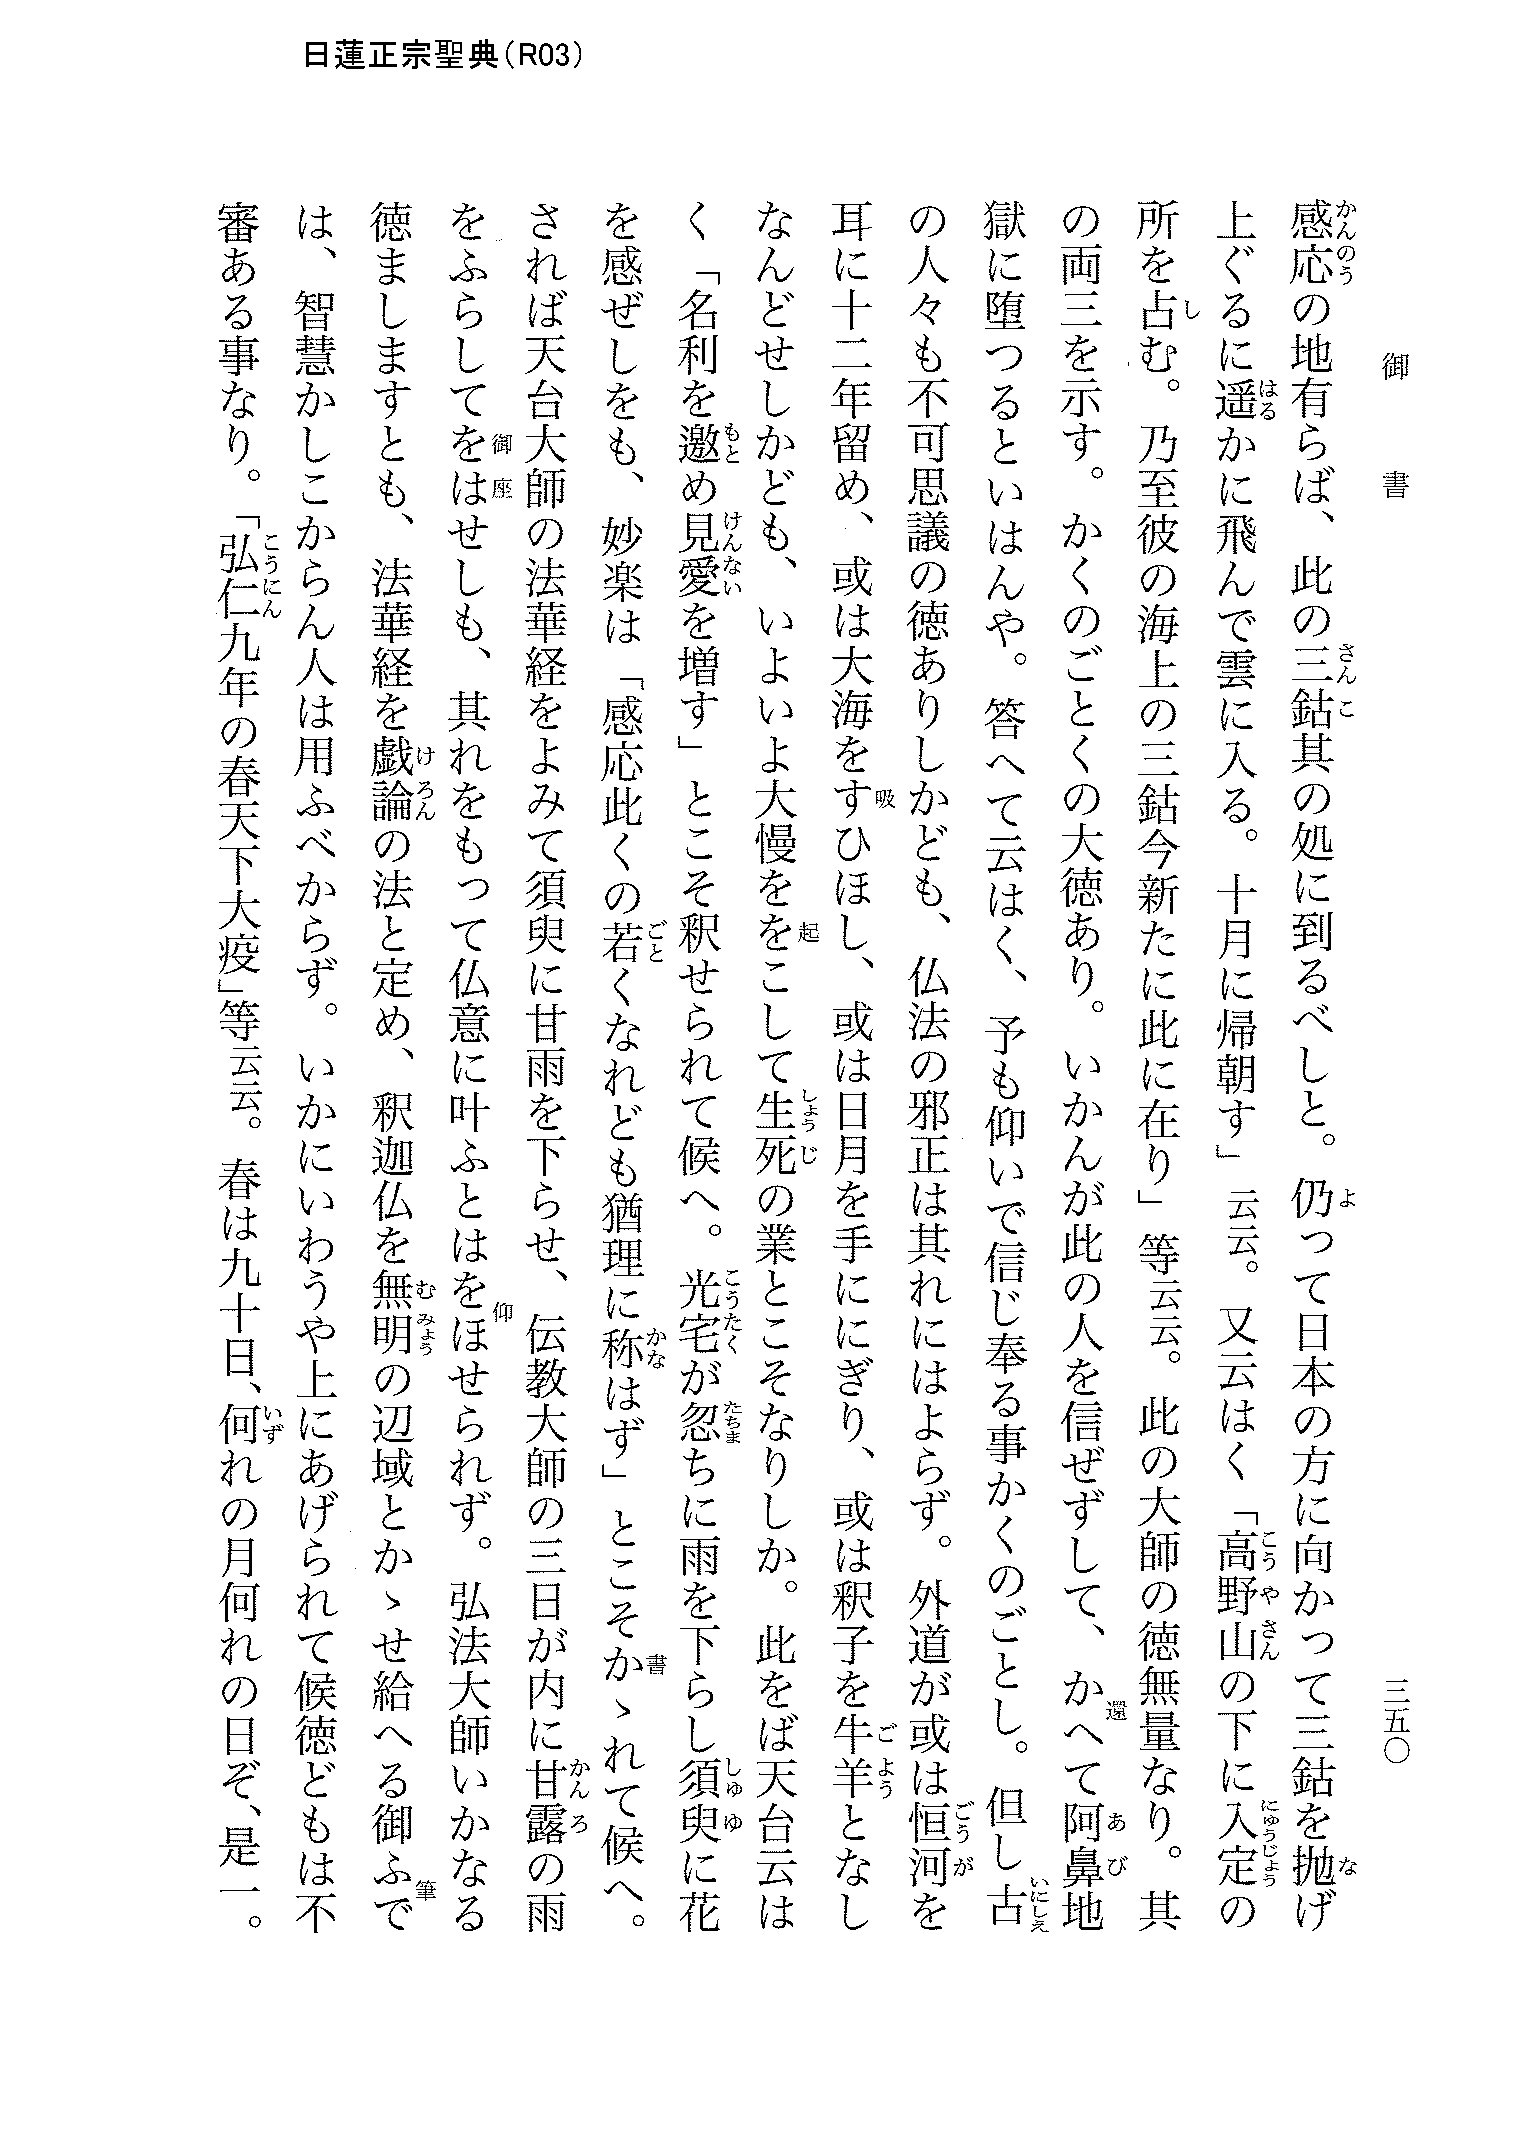 日蓮正宗聖典（R03）
御書
三五〇
感応の地有らば、此の三鈷其の処に到るべしと。仍って日本の方に向かって三鈷を抛げ
上ぐるに遥かに飛んで雲に入る。十月に帰朝す」云云。又云はく「高野山の下に入定の
所を占む。乃至彼の海上の三鈷今新たに此に在り」等云云。此の大師の徳無量なり。其
の両三を示す。かくのごとくの大徳あり。いかんが此の人を信ぜずして、かへて阿鼻地
獄に堕つるといはんや。答へて云はく、予も仰いで信じ奉る事かくのごとし。但し古
の人々も不可思議の徳ありしかども、仏法の邪正は其れにはよらず。外道が或は恒河を
耳に十二年留め、或は大海をすひほし、或は日月を手ににぎり、或は釈子を牛羊となし
なんどせしかども、いよいよ大慢ををこして生死の業とこそなりしか。此をば天台云は
く「名利を邀め見愛を増す」とこそ釈せられて候へ。光宅が忽ちに雨を下らし須臾に花
を感ぜしをも、妙楽は「感応此くの若くなれども猶理に称はず」とこそかゝれて候へ。
されば天台大師の法華経をよみて須臾に甘雨を下らせ、伝教大師の三日が内に甘露の雨
をふらしてをはせしも、其れをもって仏意に叶ふとはをほせられず。弘法大師いかなる
徳ましますとも、法華経を戯論の法と定め、釈迦仏を無明の辺域とかゝせ給へる御ふで
は、智慧かしこからん人は用ふべからず。いかにいわうや上にあげられて候徳どもは不
審ある事なり。「弘仁九年の春天下大疫」等云云。春は九十日、何れの月何れの日ぞ、是一。